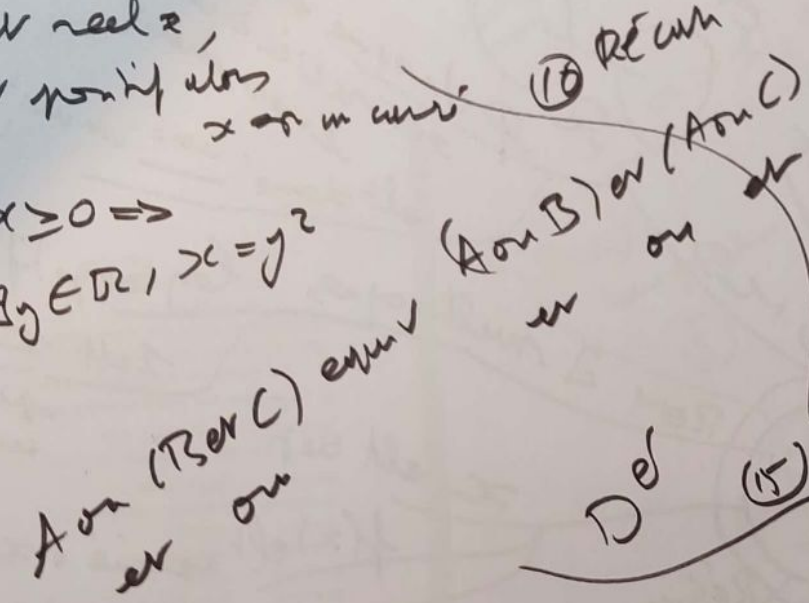 réel x,
positif alors
x est un carré
x ≥ 0 =>
∃y ∈ ℝ, x = y²
A ou (B et C) equiv (A ou B) et (A ou C)
et ou et ou et
16 Récur
D
15